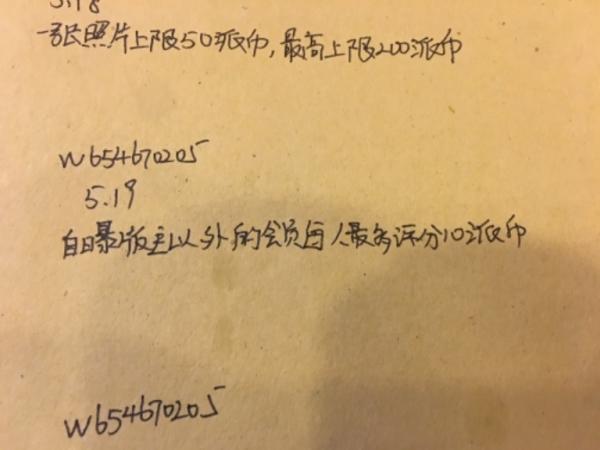 5.18
一张照片上限50派币,最高上限200派币
W654670205
5.19
自曝版主以外的会员每人最多评分10派币
W654670205